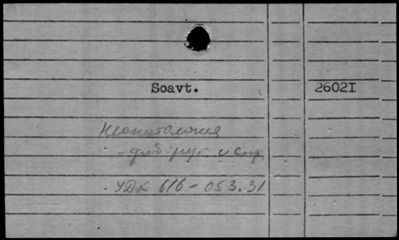 Soavt. 26021
Неонатология
- див рус. и спр.
УДК 616-053.31